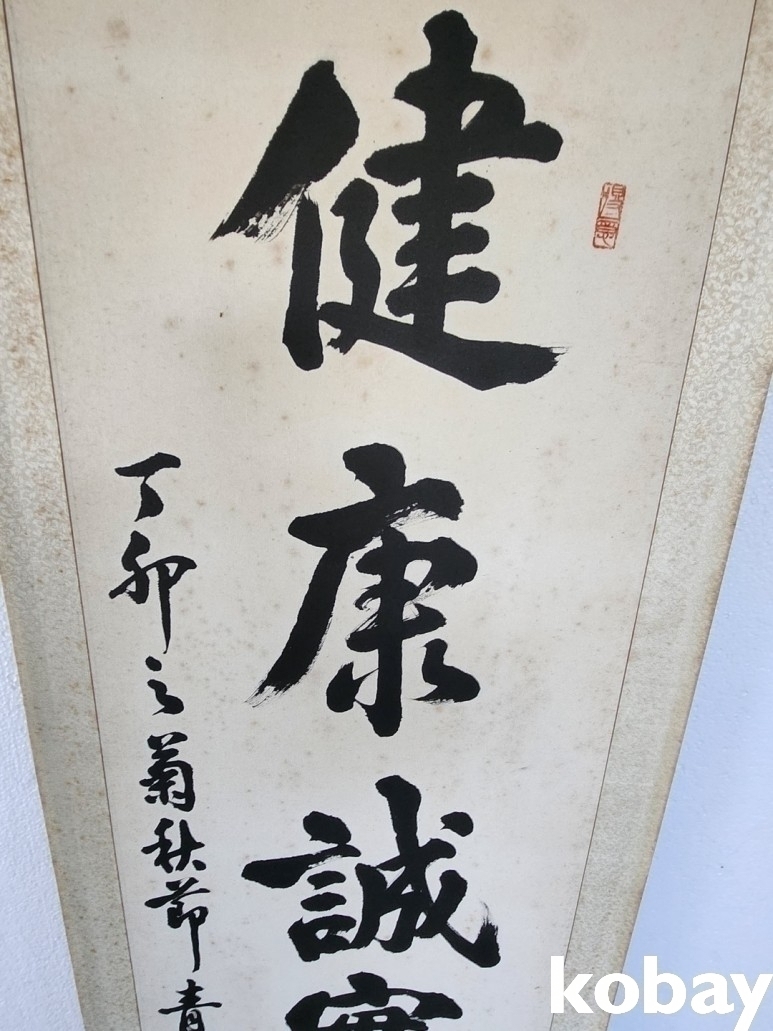 健康誠
丁卯之菊秋節青
kobay